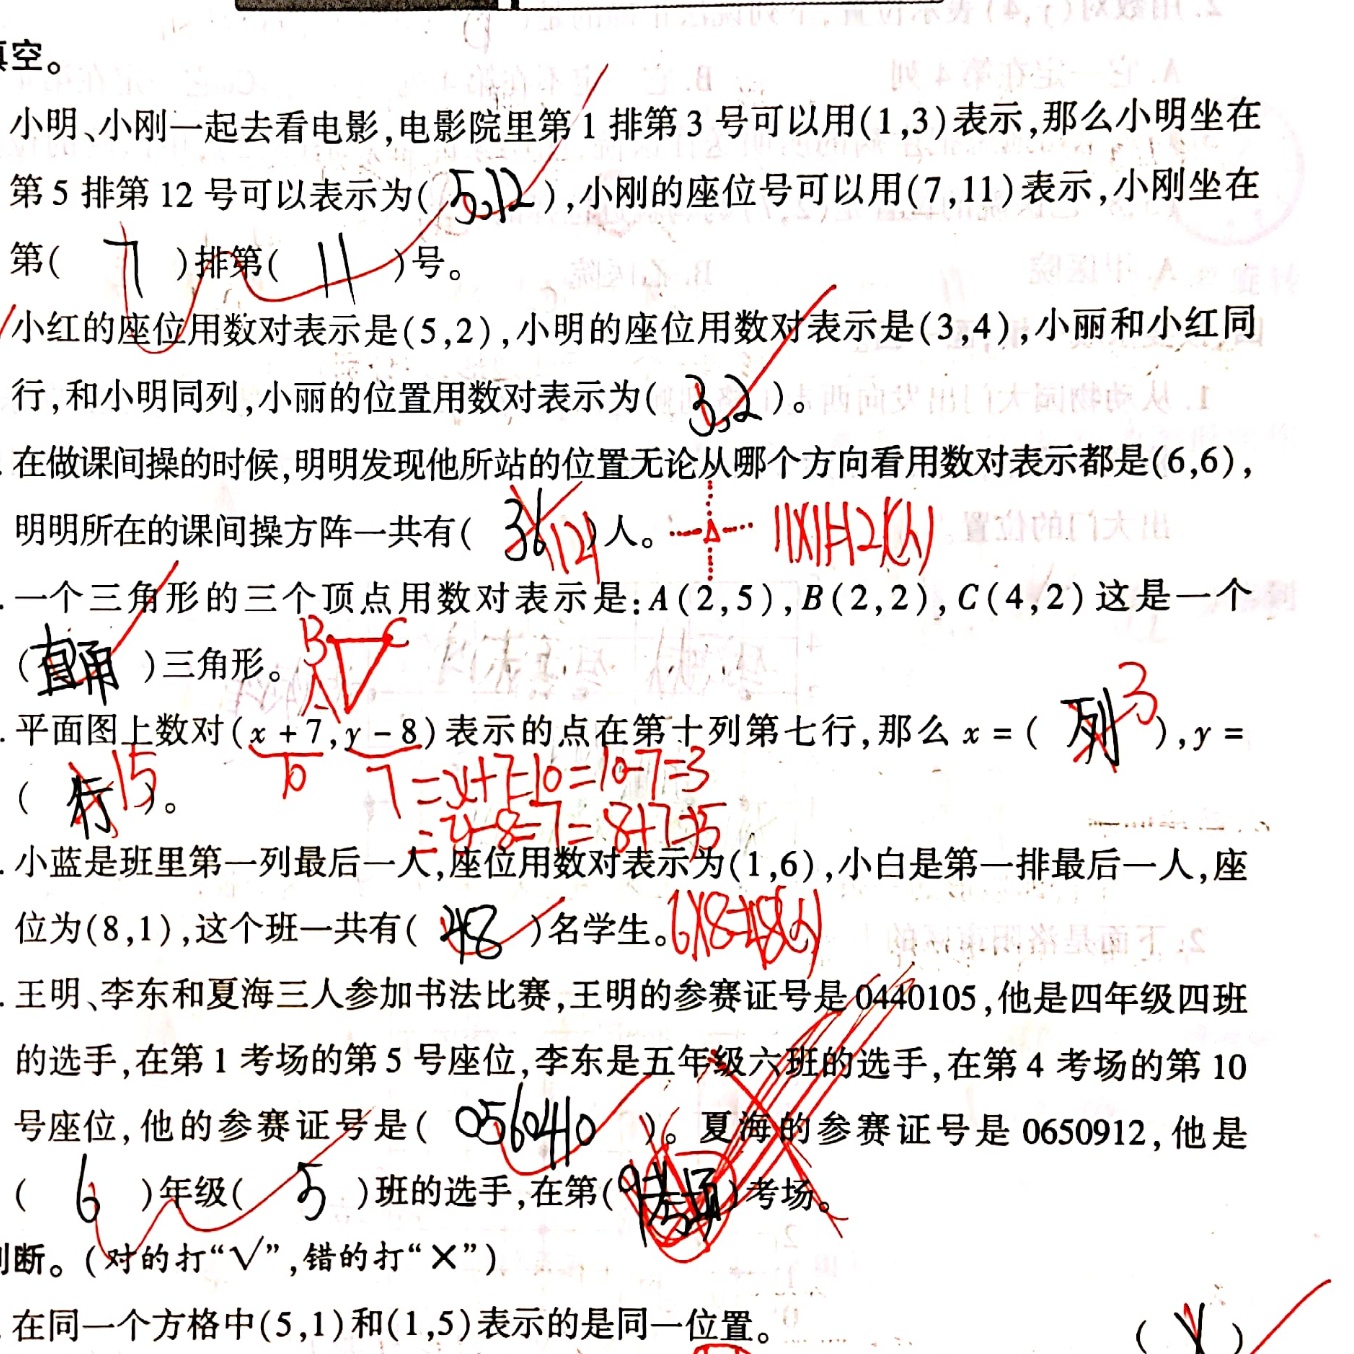 空。
小明、小刚一起去看电影,电影院里第1排第3号可以用(1,3)表示,那么小明坐在
第5排第12号可以表示为(5,12),小刚的座位号可以用(7,11)表示,小刚坐在
第(7)排第(11)号。
小红的座位用数对表示是(5,2),小明的座位用数对表示是(3,4),小丽和小红同
行,和小明同列,小丽的位置用数对表示为(3,2)。
在做课间操的时候,明明发现他所站的位置无论从哪个方向看用数对表示都是(6,6),
明明所在的课间操方阵一共有(36 121)人。 11×11=121(人)
一个三角形的三个顶点用数对表示是:A(2,5),B(2,2),C(4,2)这是一个
(直角)三角形。 B C A
平面图上数对(x+7,y-8)表示的点在第十列第七行,那么x=(列 3),y=
10 7 =x+7=10=10-7=3
(行 15)。
=y-8=7=8+7=15
小蓝是班里第一列最后一人,座位用数对表示为(1,6),小白是第一排最后一人,座
位为(8,1),这个班一共有(48)名学生。 6×8=48(人)
王明、李东和夏海三人参加书法比赛,王明的参赛证号是0440105,他是四年级四班
的选手,在第1考场的第5号座位,李东是五年级六班的选手,在第4考场的第10
号座位,他的参赛证号是(0560410)。夏海的参赛证号是0650912,他是
(6)年级(5)班的选手,在第(9)考场。
判断。(对的打“√”,错的打“×”)
在同一个方格中(5,1)和(1,5)表示的是同一位置。 (×)